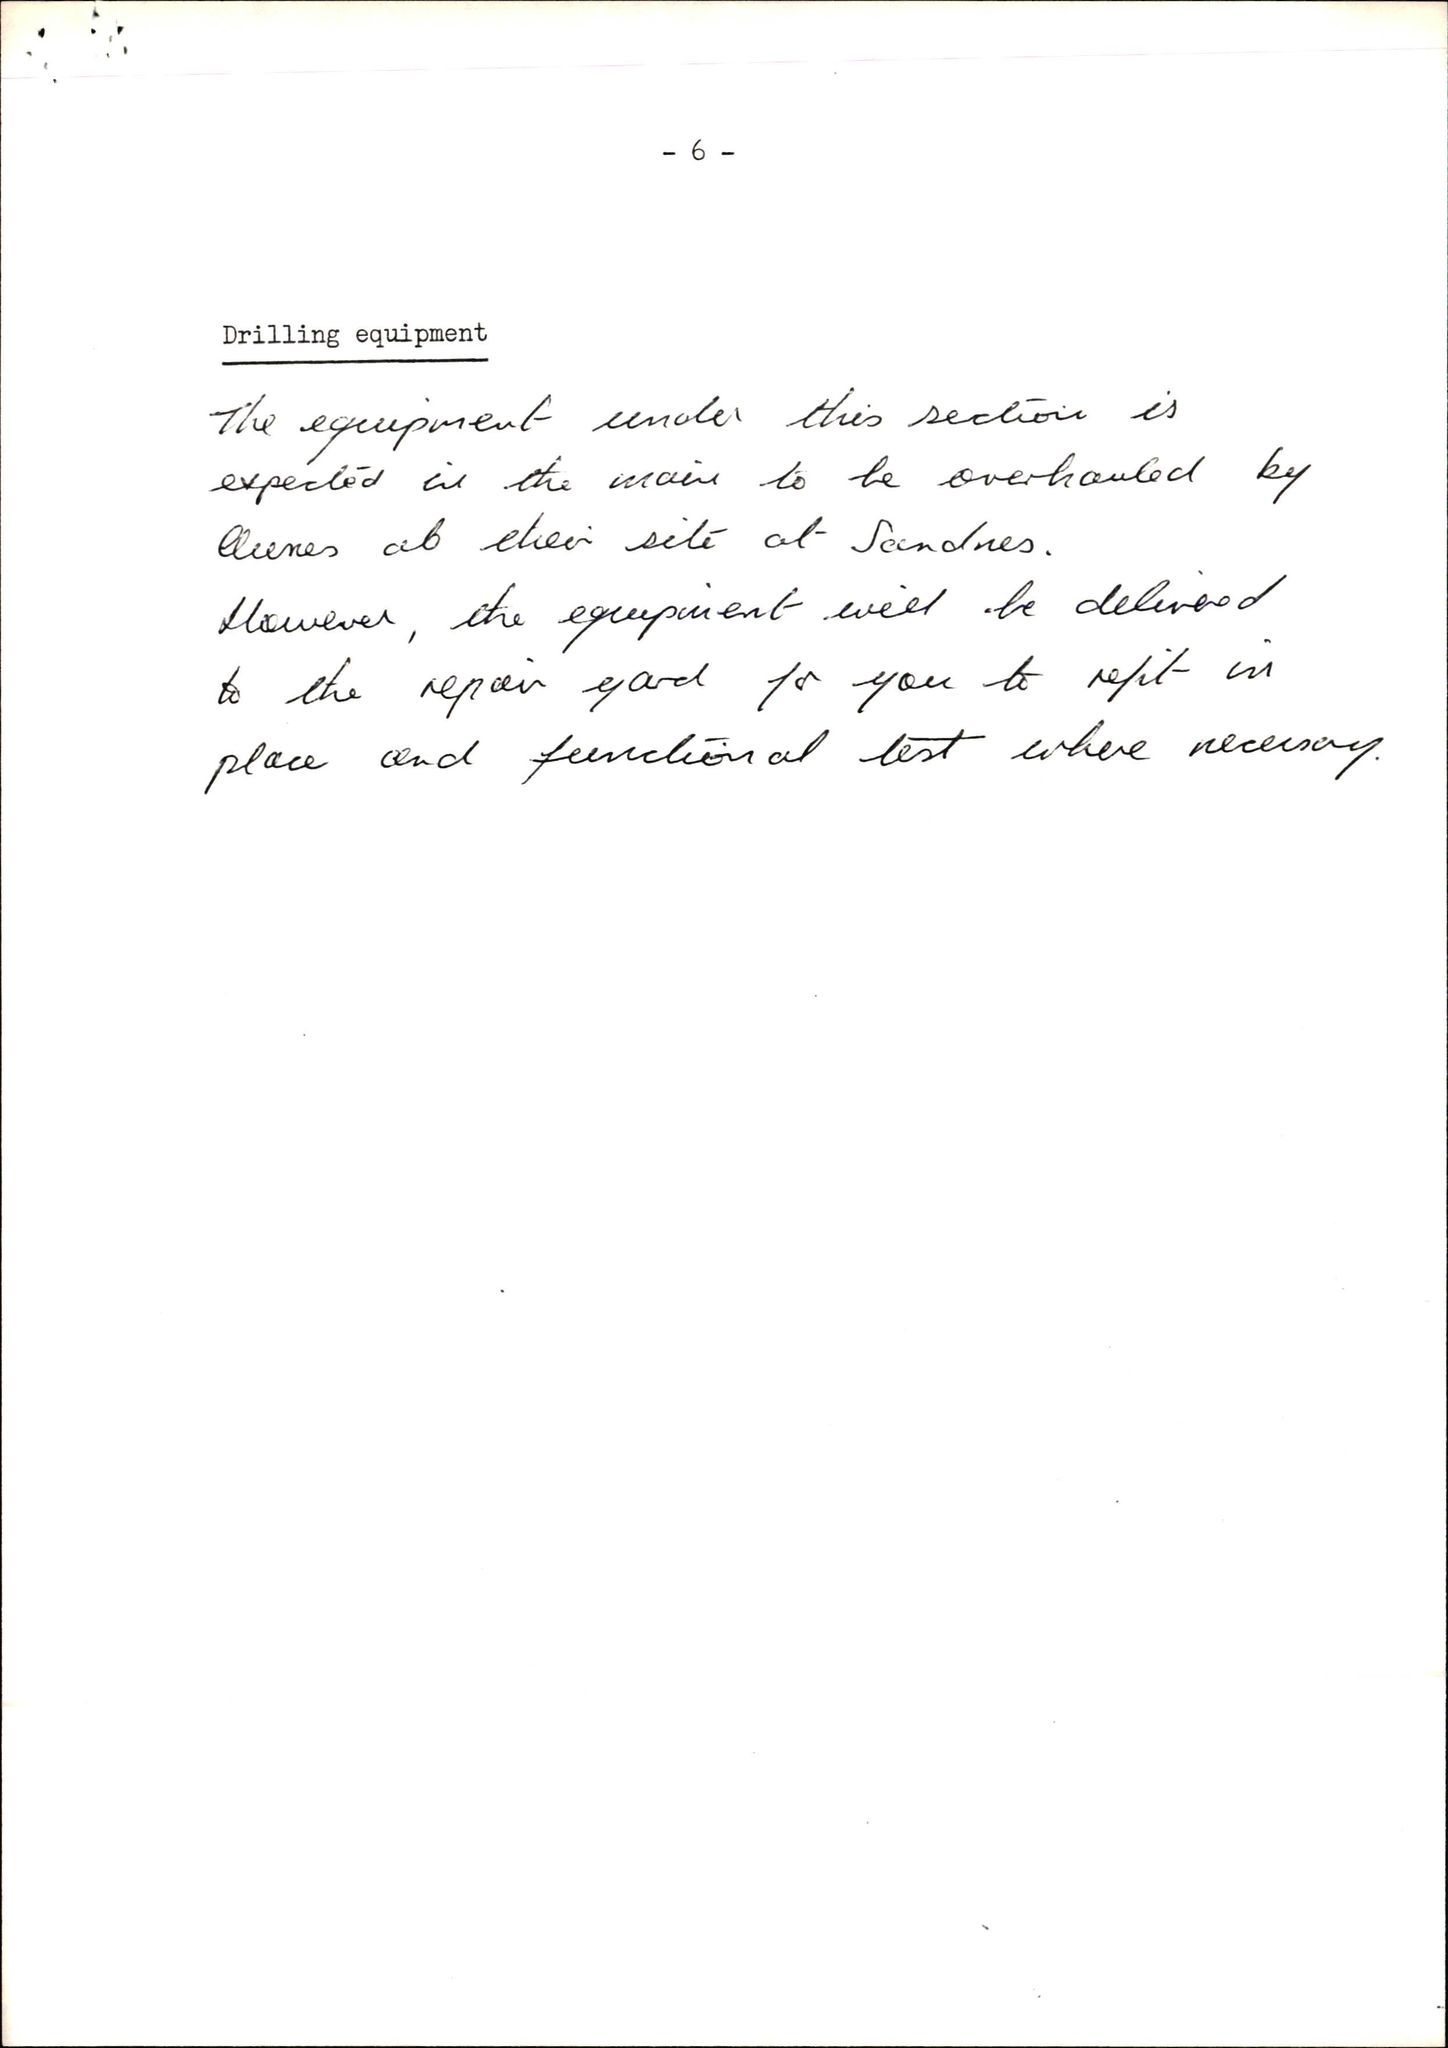 - 6 -
Drilling equipment
The equipment under this section is
expected in the main to be overhauled by
at their site at Sandnes.
However, the equipment will be delivered
to the repair yard for you to refit in
place and functional test where necessary.